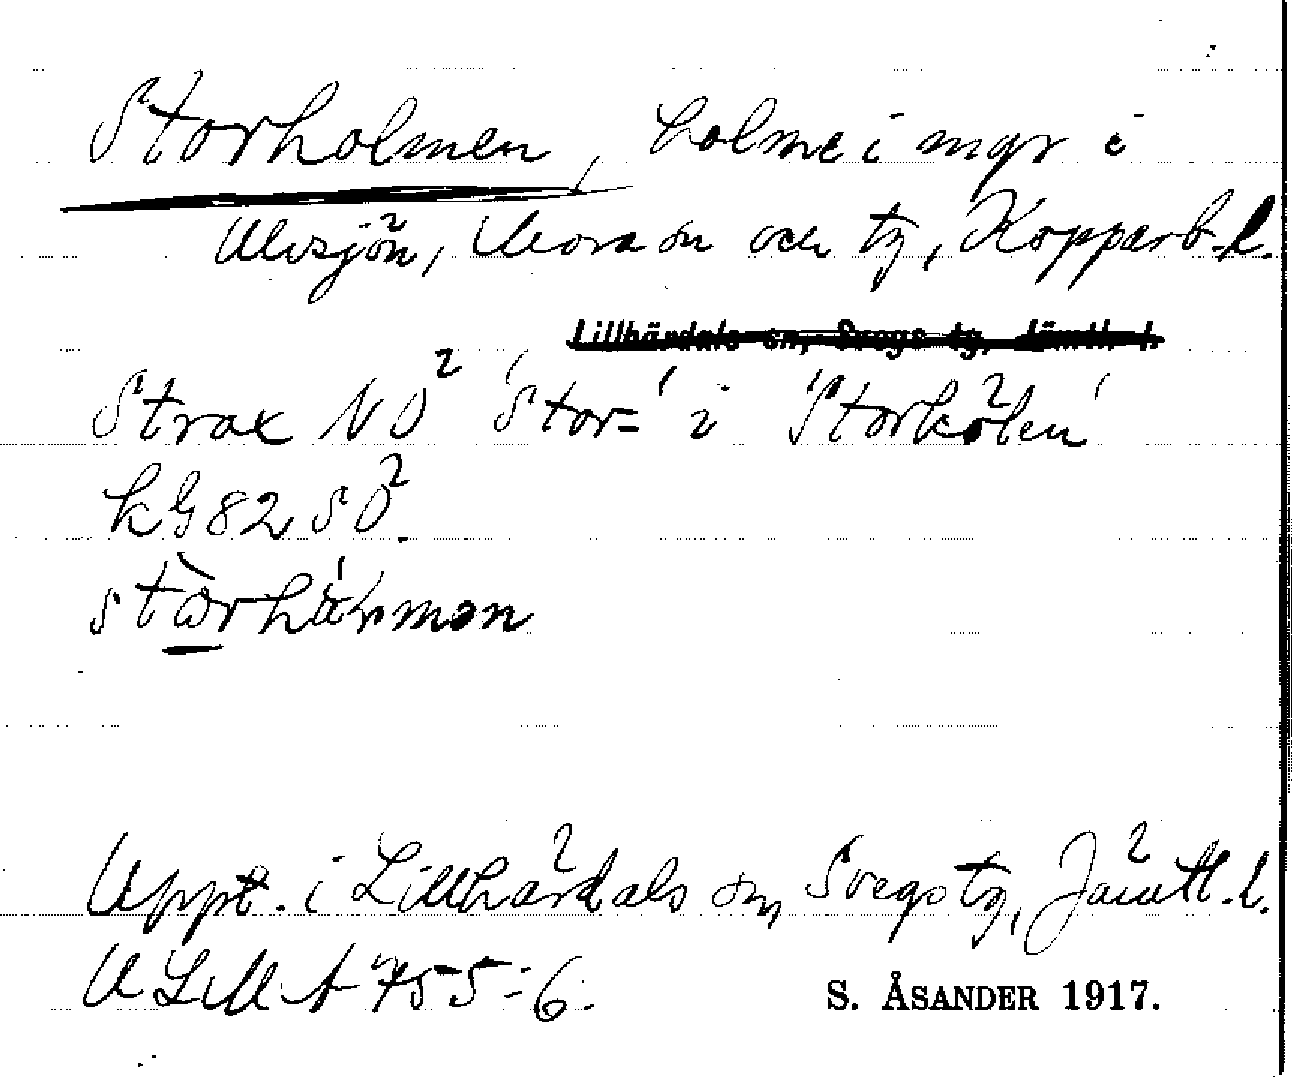 Storholmen, holme i myr i
Ulvsjön, Mora sn och tg, Kopparb. l.
Lillhärdals sn, Svegs tg, Jämtl. l.
Strax NÖ 'Stor-' i 'Storkölen'
kG 82 SÖ.
Uppt. i Lillhärdals sn, Svegs tg, Jämtl. l.
ULMA 755:6.
S. ÅSANDER 1917.